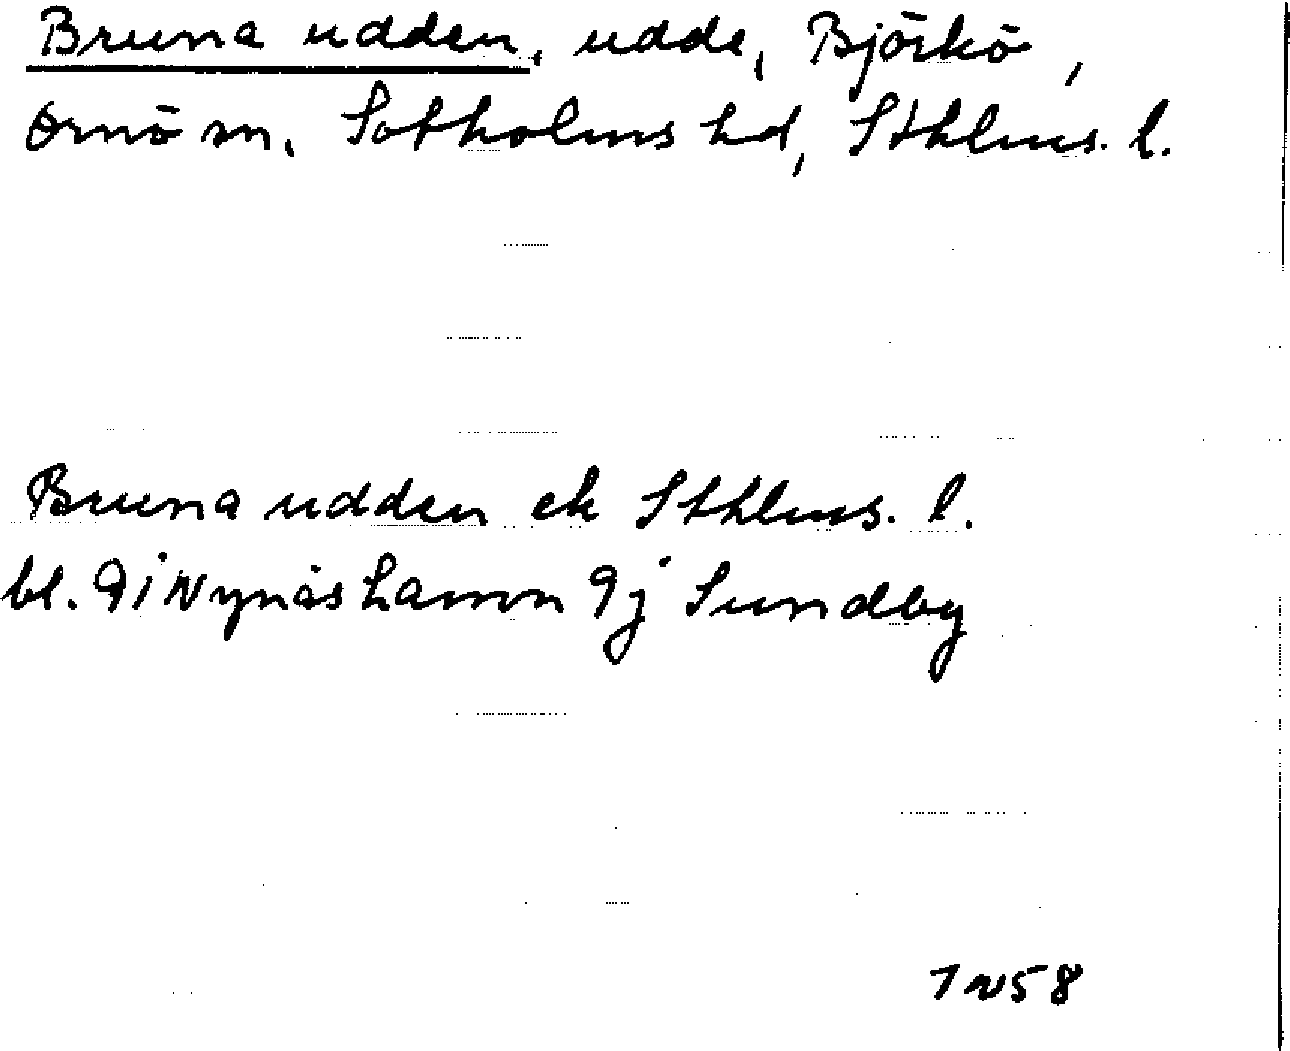 Bruna udden, udde, Björkö,
Ornö sn, Sotholms hd, Sthlms. l.
Bruna udden ek Sthlms. l.
bl. 9i Nynäshamn 9j Sundby